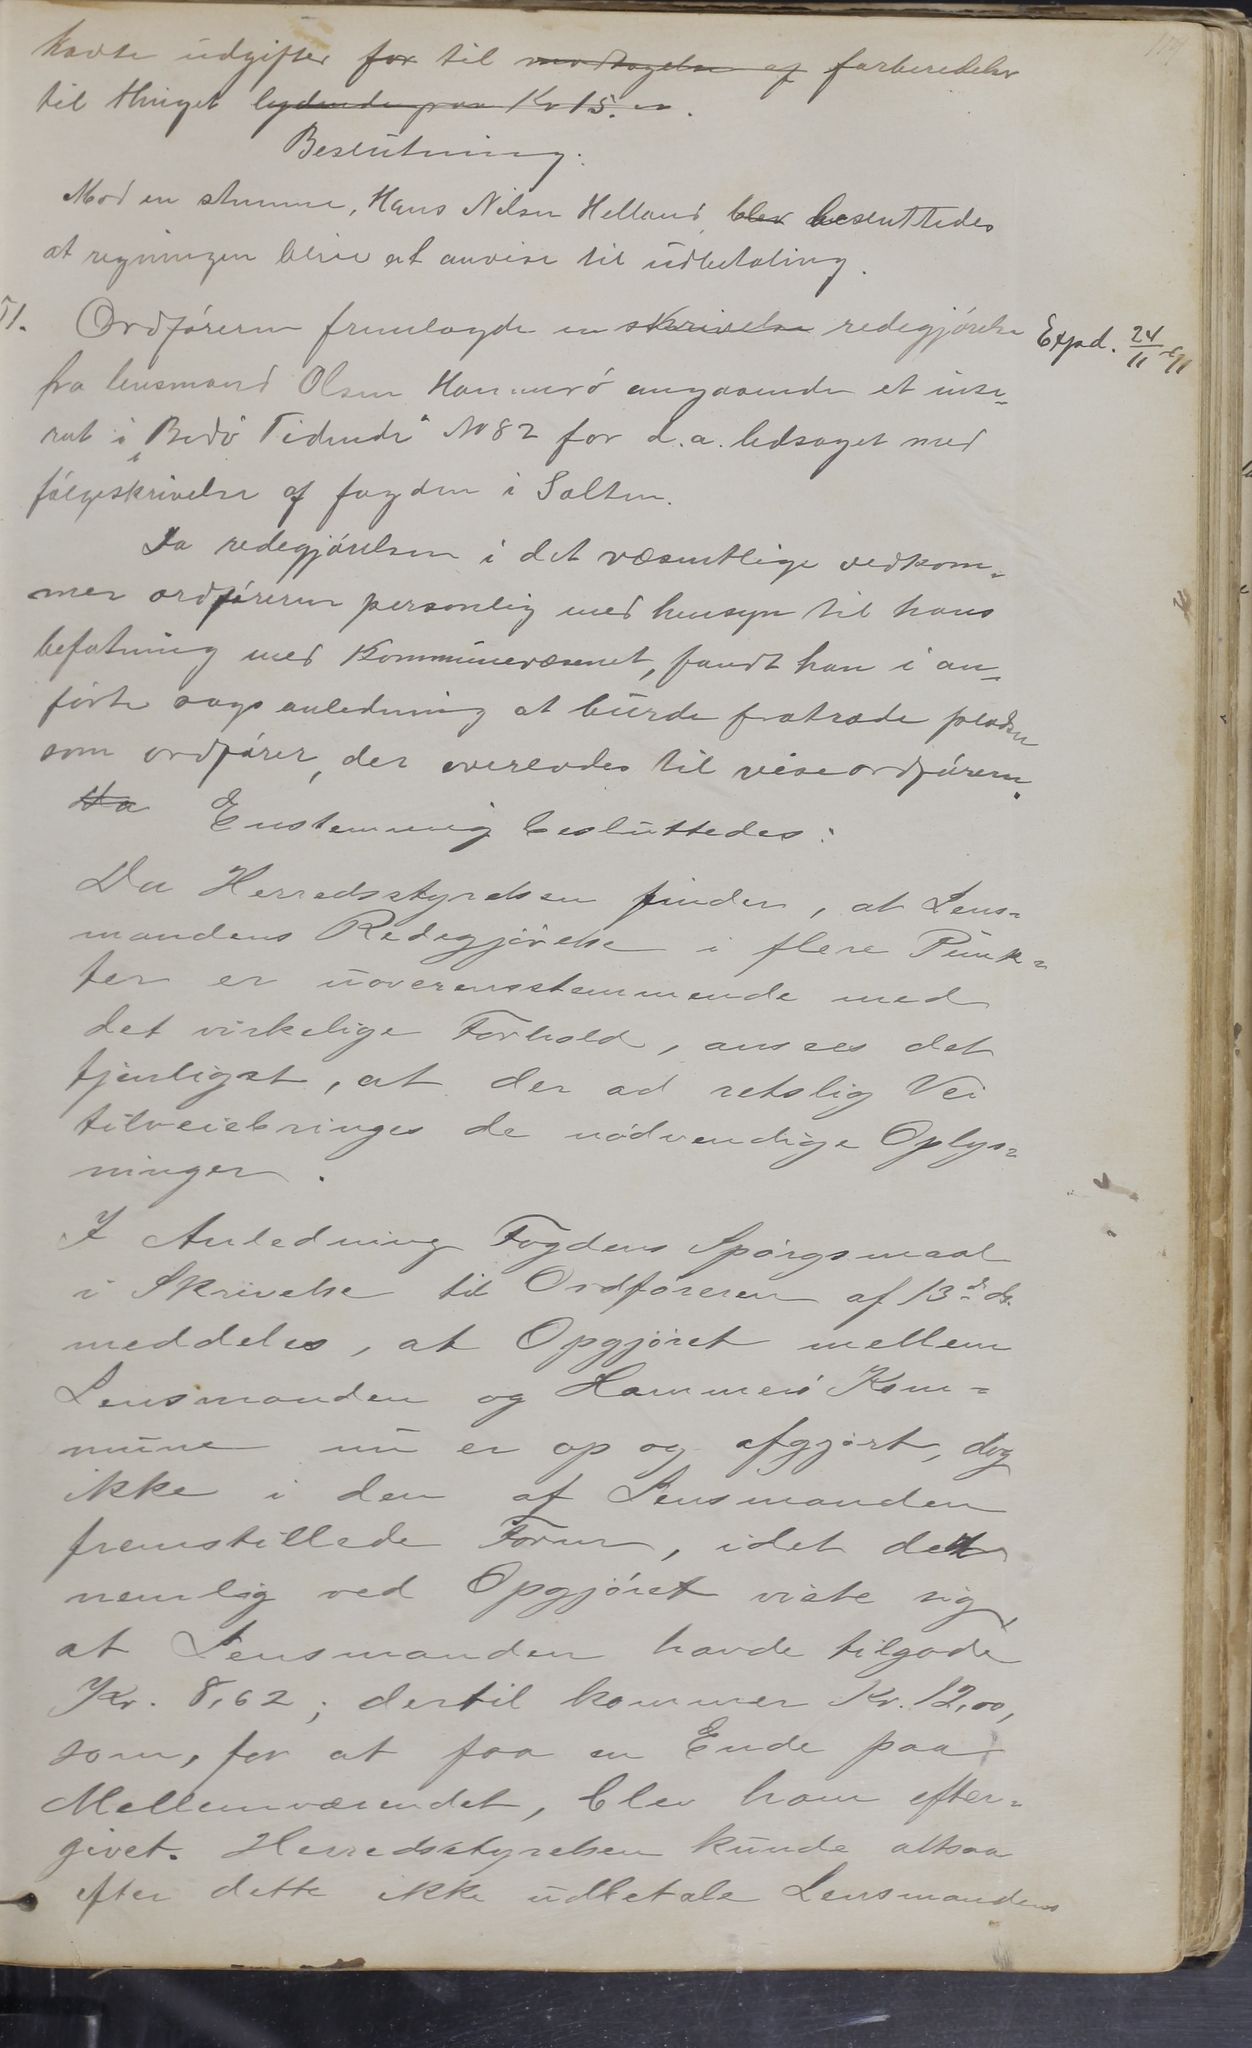 havte udgifter ~~for~~ til ~~modtagelse af~~ forberedelser
til thinget ~~lydende paa Kr 15.00~~.
Beslutning:
Mod en stemme, Hans Nilsen Helland, ~~blev~~ besluttedes
at regningen blive at anvise til udbetaling.
Ordføreren fremlagde en ~~skrivelse~~ redegjørelse
Expd. 24/11 91
fra lensmand Olsen Hammerø angaaende et inse-
rat i „Bodø Tidende“ No 82 for d.a. ledsaget med
følgeskrivelse af fogden i Salten.
Da redegjørelsen i det væsentlige vedkom-
mer ordføreren personlig med hensyn til hans
befatning med Kommunevæsenet, fandt han i an-
førte sags anledning at burde fratræde pladsen
som ordfører, der overlodes til viseordføreren.
~~Da~~ Enstemmig besluttedes:
Da Herredsstyrelsen finder, at Lens-
mandens Redegjørelse i flere Punk-
ter er uoverensstemmende med
det virkelige Forhold, ansees det
tjenligst, at der ad retslig Vei
tilveiebringes de nødvendige Oplys-
ninger.
I Anledning Fogdens Spørgsmaal
i Skrivelse til Ordføreren af 13de ds.
meddeles, at Opgjøret mellem
Lensmanden og Hammerø Kom-
mune nu er op og afgjort, dog
ikke i den af Lensmanden
fremstillede Form, idet det
nemlig ved Opgjøret viste sig,
at Lensmanden havde tilgode
Kr. 8,62; dertil kommer Kr. 12,00,
som, for at faa en Ende paa
Mellemværendet, blev ham efter-
givet. Herredsstyrelsen kunde altsaa
efter dette ikke udbetale Lensmandens